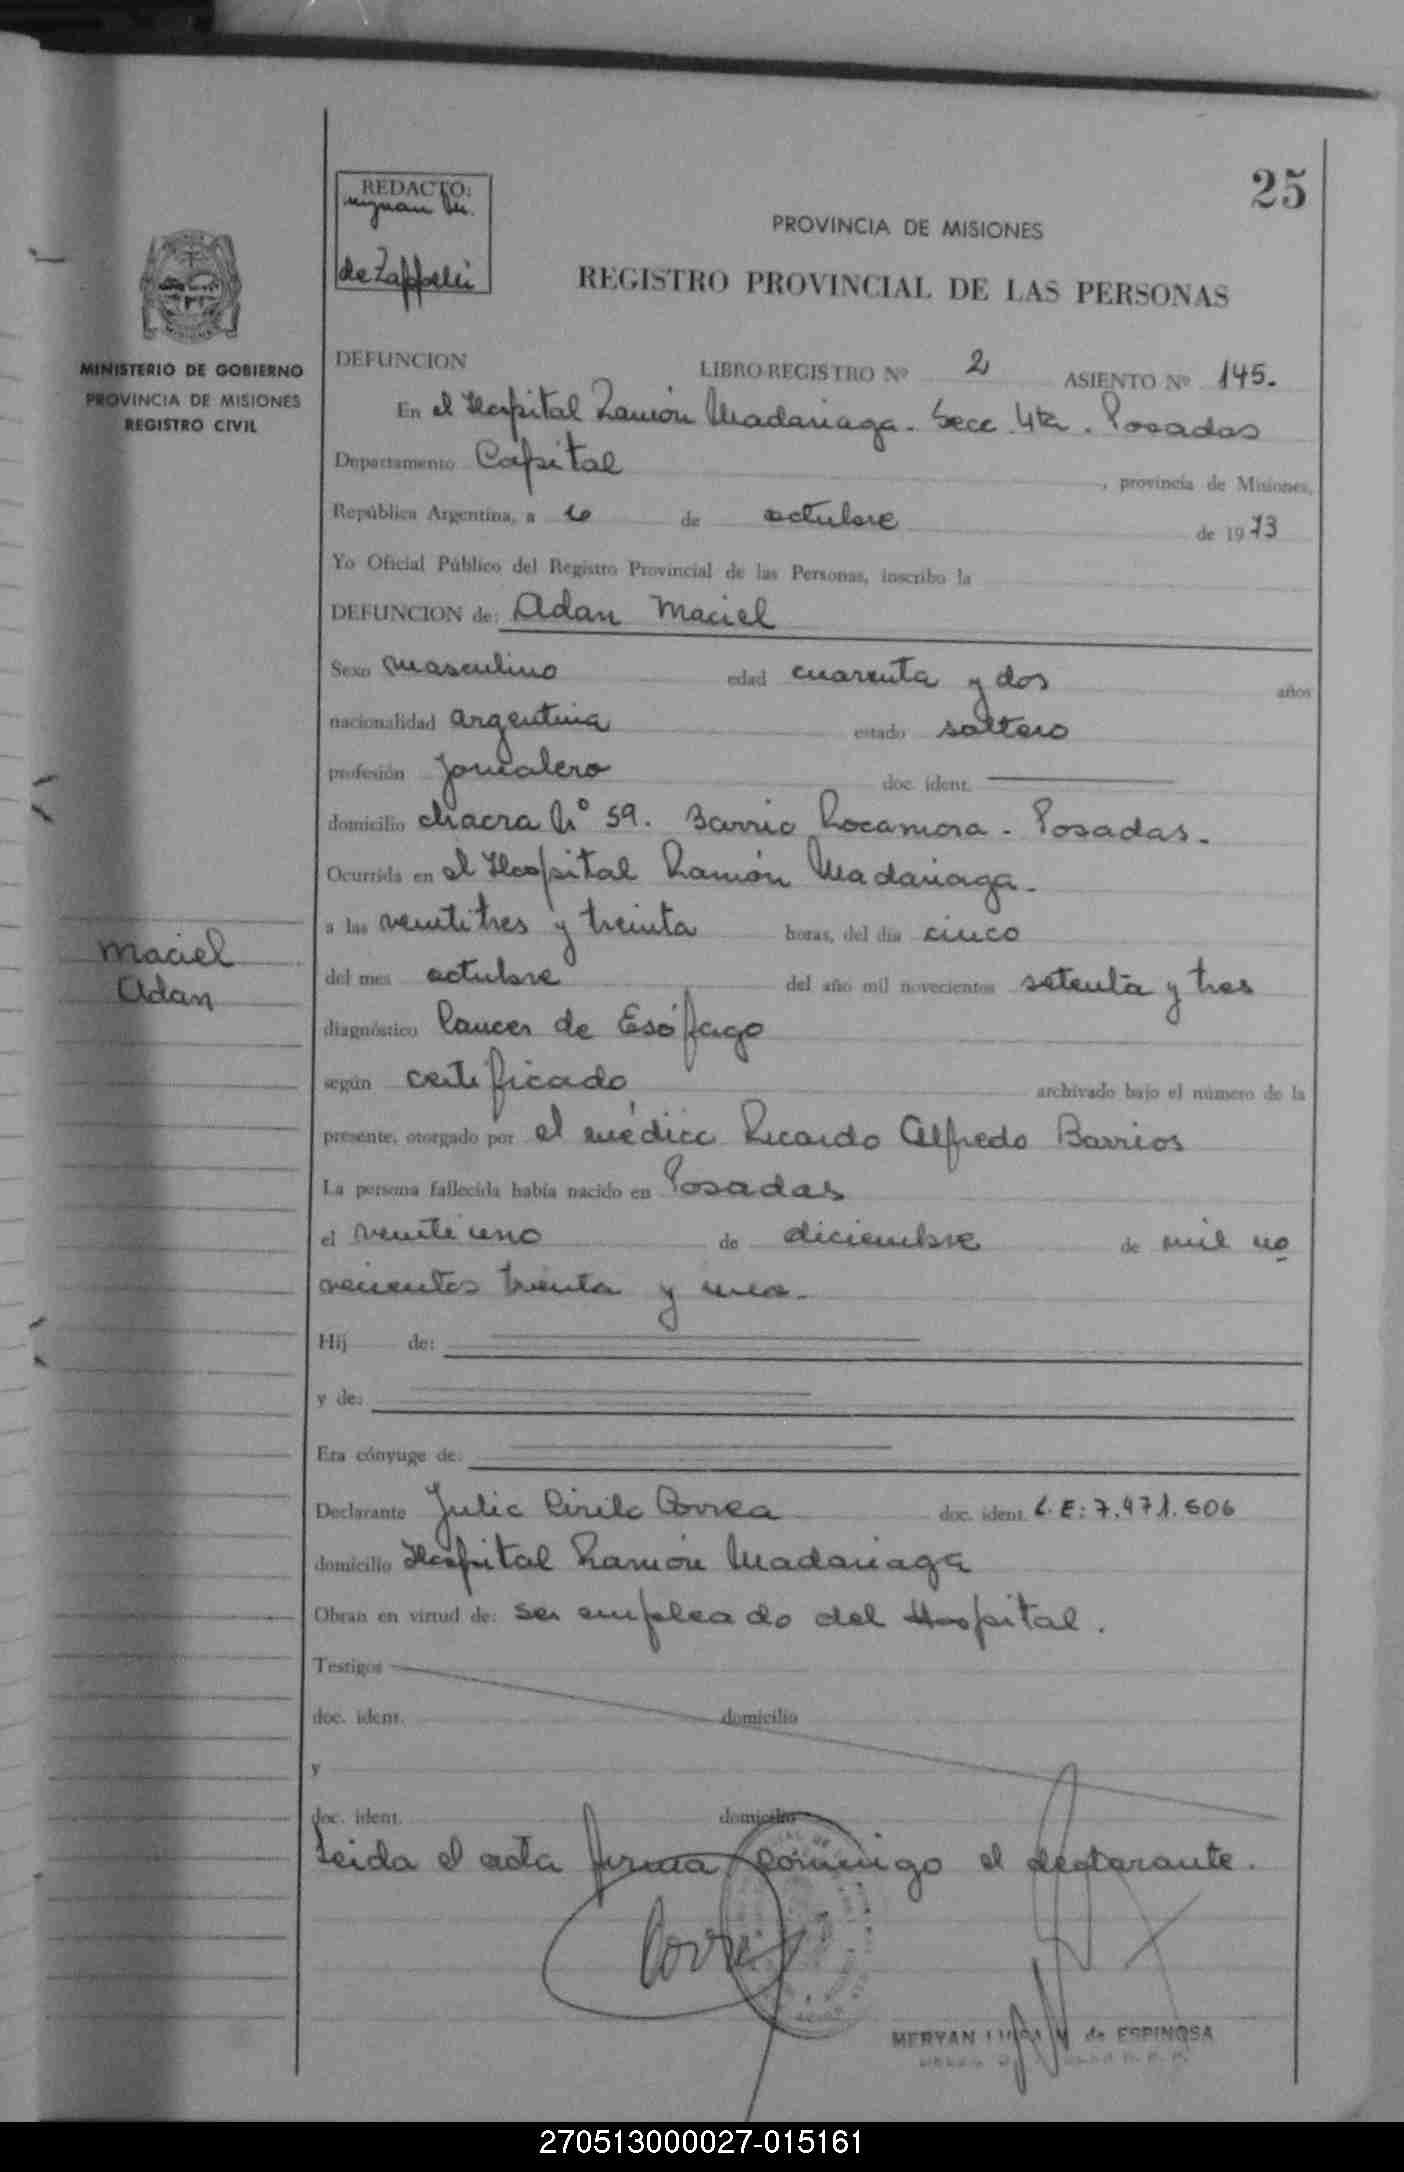 25
REDACTO:
de Zappelli
PROVINCIA DE MISIONES
REGISTRO PROVINCIAL DE LAS PERSONAS
MINISTERIO DE GOBIERNO
PROVINCIA DE MISIONES
REGISTRO CIVIL
DEFUNCION LIBRO-REGISTRO Nº 2 ASIENTO Nº 145.
En el Hospital Ramón Madariaga. Secc. 4ta. Posadas
Departamento Capital, provincia de Misiones,
República Argentina, a 6 de octubre de 1973
Yo Oficial Público del Registro Provincial de las Personas, inscribo la
DEFUNCION de: Adan Maciel
Sexo masculino edad cuarenta y dos años
nacionalidad argentina estado soltero
profesión Jornalero doc. ident.
domicilio chacra Nº 59. Barrio Rocamora - Posadas.
Ocurrida en el Hospital Ramón Madariaga.
a las veintitres y treinta horas, del día cinco
del mes octubre del año mil novecientos setenta y tres
diagnóstico Cancer de Esófago
según certificado archivado bajo el número de la
presente, otorgado por el médico Ricardo Alfredo Barrios
La persona fallecida había nacido en Posadas
el veintiuno de diciembre de mil no
vecientos treinta y uno.
Hij de:
y de:
Era cónyuge de:
Declarante Julio Cirilo Correa doc. ident. L.E: 7.471.506
domicilio Hospital Ramón Madariaga
Obran en virtud de: ser empleado del Hospital.
Testigos
doc. ident. domicilio
y
doc. ident. domicilio
Leida el acta firma conmigo el declarante.
Maciel
Adan
MERYAN de ESPINOSA
270513000027-015161